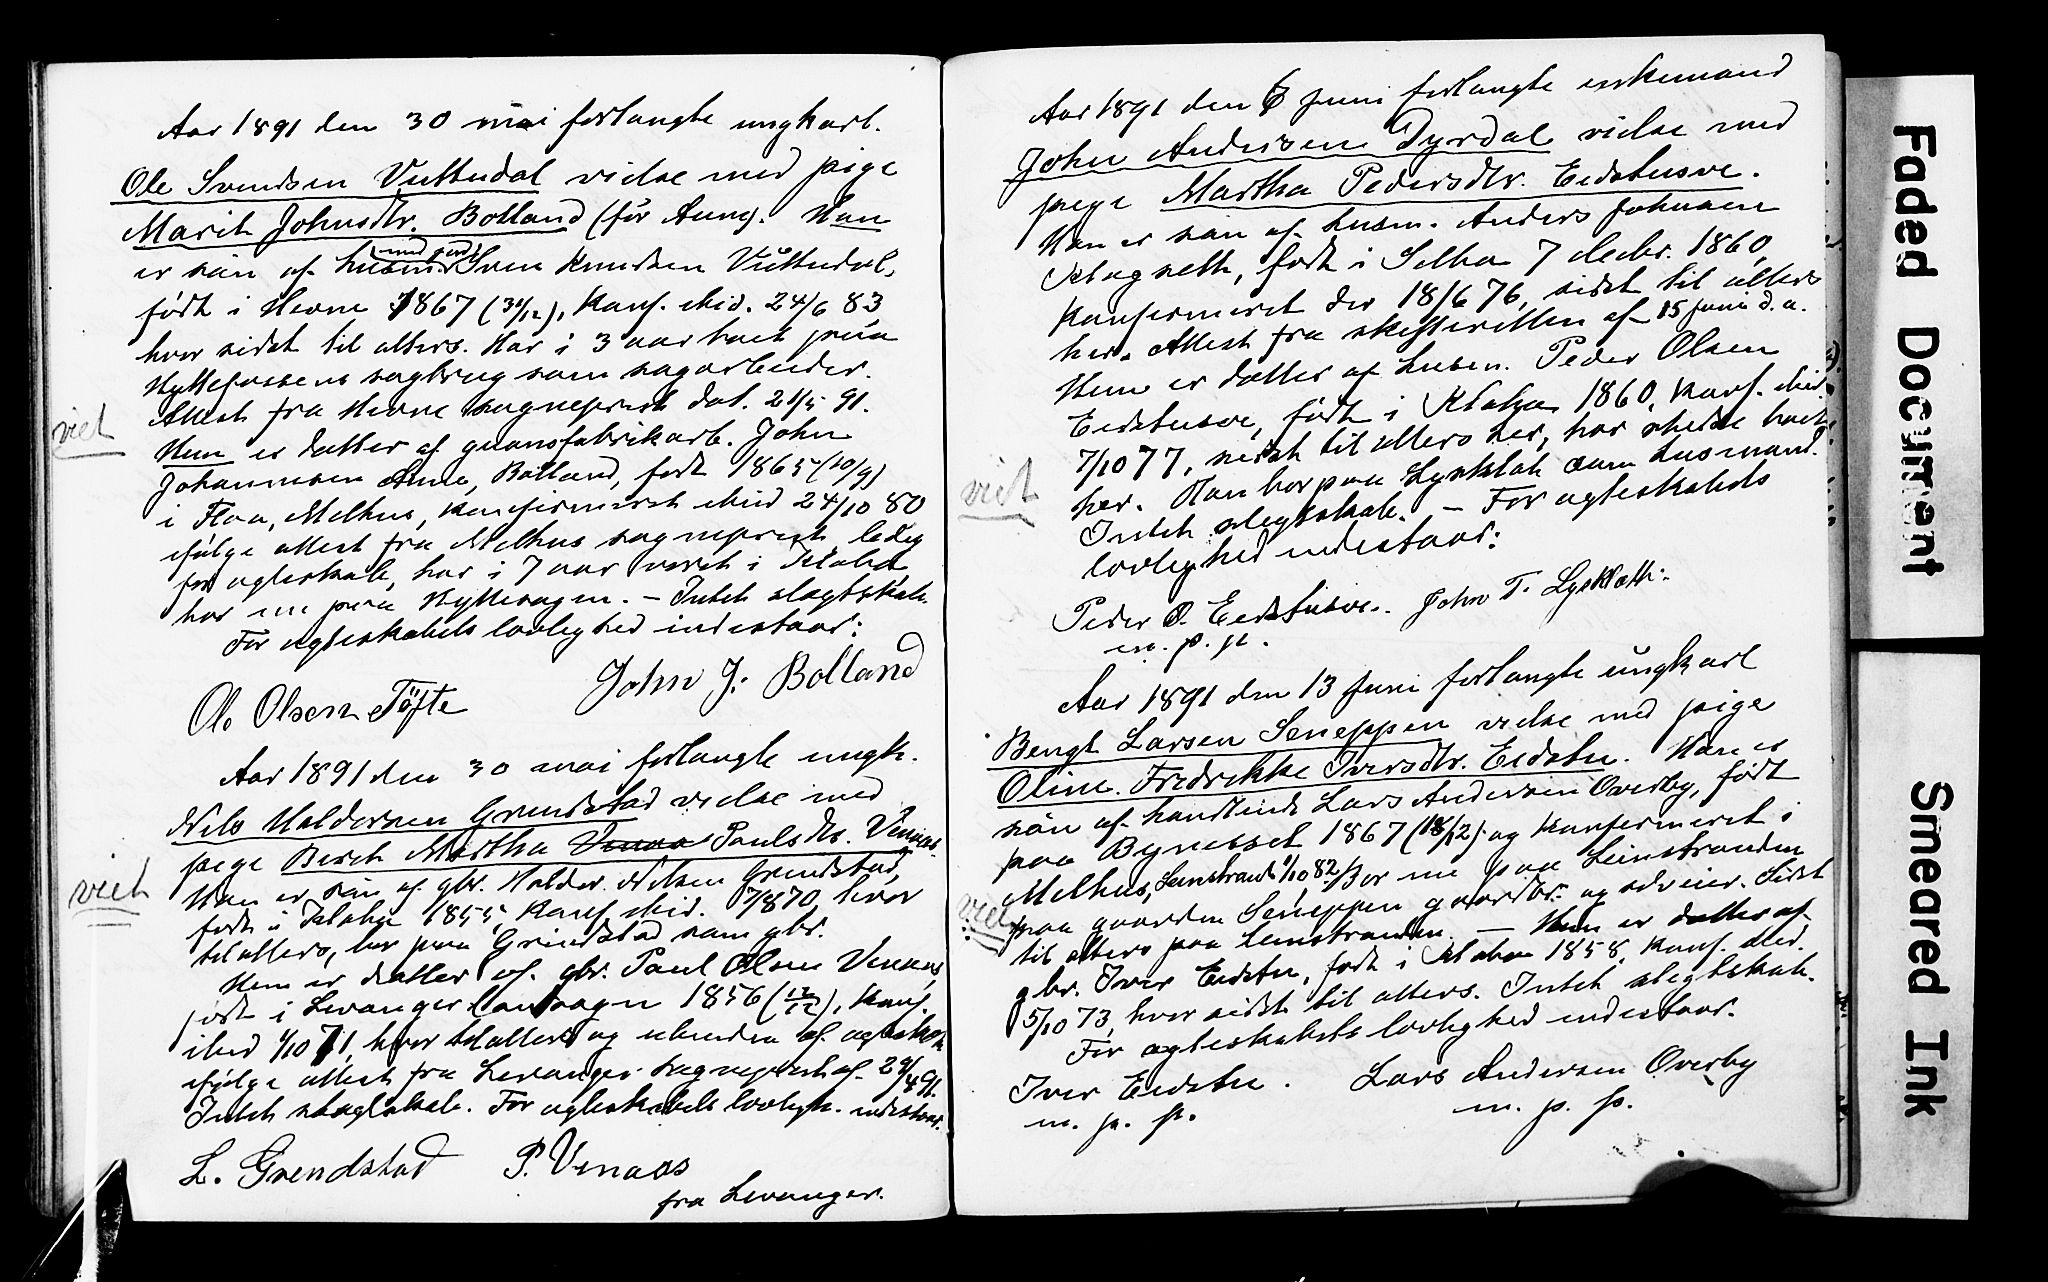 Aar 1891 den 30 mai forlangte ungkarl.
Ole Svendsen Vuttudal vielse med pige
Marit Johnsdtr. Bolland (för Aune). Han
er sön af husm. med jord Sven Knudsen Vuttudal,
født i Hevne 1867 (31/12), Konf. ibid. 24/6 83
hvor sidst til alters. Har i 3 aar havt paa
Hyttefossens sagbrug som sagarbeider.
Attest fra Hevne sogneprest dat. 21/5 91.
viet
Hun er datter af guanofabrikarb. John
Johannesen Aune, Bolland, født 1865 (10/9)
i Flaa, Melhus, konfirmeret ibid 24/10 80
ifølge attest fra Melhus sogneprest ledig
for egteskab, har i 7 aar været i Klæbu
bor nu paa Hyttesagen. – Intet slegtskab.
For egteskabets lovlighed indestaar:
Ole Olsen Töfte John J. Bolland
Aar 1891 den 30 mai forlangte ungk.
Nils Haldorsen Grendstad vielse med
pige Berit Martha Paulsdtr. Venaas.
viet
Han er sön af gbr. Haldor Nilsen Grendstad,
født i Klæbu 1855, Konf. ibid. 7/8 70, hvor
til alters, bor paa Grendstad som gbr.
Hun er datter af gbr. Paul Olsen Venaas,
født i Levanger landsogn 1856 (12/12), Konf.
ibid 1/10 71, hvor til alters og ubunden af egtesk.
ifølge attest fra Levanger sogneprest af 29/4 91.
Intet slegtskab. For egteskabets lovligh. indestaar.
L. Grendstad P. Venaas
fra Levanger.
Aar 1891 den 6 Juni forlangte enkemand
John Andersen Dyrdal vielse med
pige Martha Pedersdtr. Eidstusve.
Han er sön af husm. Anders Johnsen
født i Selbu 7 decbr. 1860,
Konfirmeret der 18/6 76, sidst til alters
her. Attest fra skifteretten af 15 juni d. a.
Hun er datter af husm. Peder Olsen
Eidstusve, født i Klæbu 1860, Konf. ibid.
7/10 77, sidst til alters her, har stedse havt
viet
her. Han bor paa Lysklet som husmand.
Intet slegtskab. – For egteskabets
lovlighed indestaar:
Peder O. Eidstusve. John T. Lysklætt.
m. p. p.
Aar 1891 den 13 Juni forlangte ungkarl
Bengt Larsen Seneppen vielse med pige
Oline Fredrikke Iversdtr. Eidstu. Han er
sön af handlende Lars Andersen Overby, født
paa Bynesset 1867 (18/12) og Konfirmeret i
Melhus, Leinstrand 1/10 82. Bor nu paa Leinstranden
viet
paa gaarden Seneppen gaardbr. og selveier. Sidst
til alters paa Leinstranden. – Hun er datter af
gbr. Iver Eidstu, født i Klæbu 1858, Konf. ibid.
5/10 73, hvor sidst til alters. Intet slegtskab.
For egteskabets lovlighed indestaar.
Iver Eidstu. Lars Andersen Overby
m. p. p. m. p. p.
Faded Document
Smeared Ink